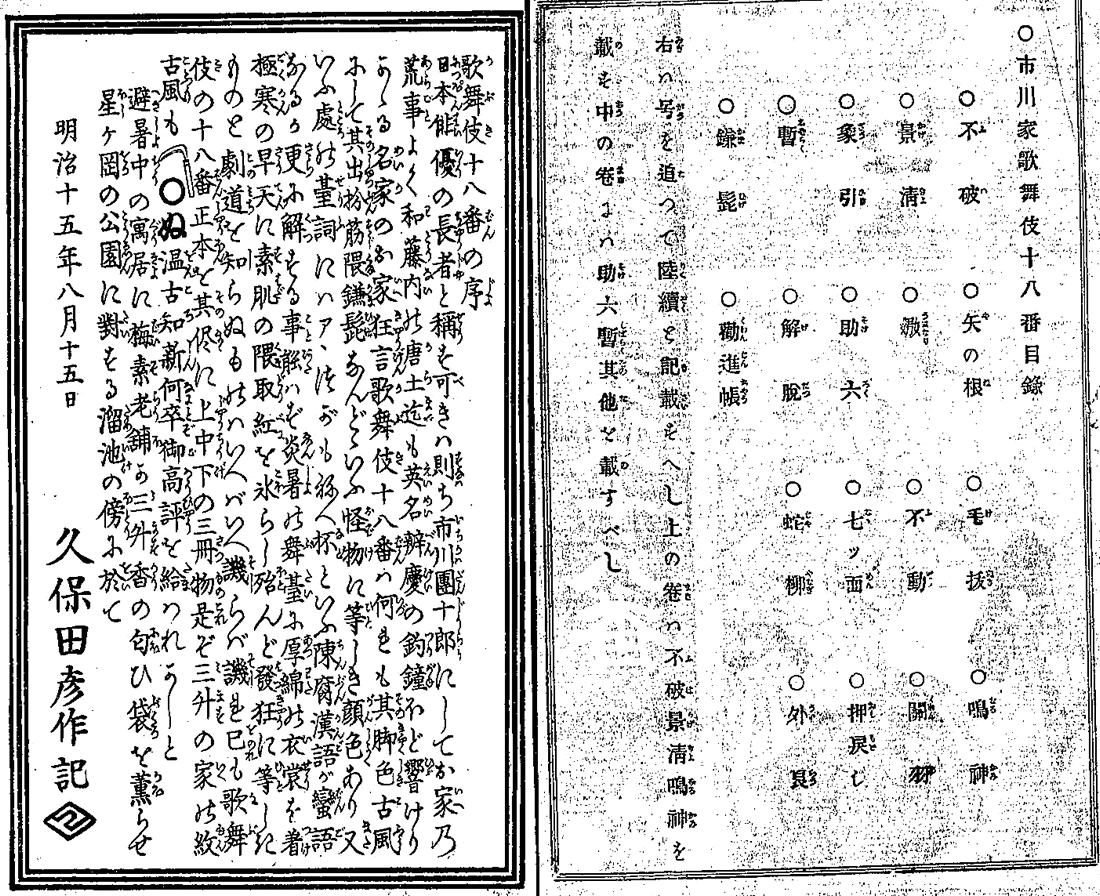 ○市川家歌舞伎十八番目録
○不破　○矢の根　○毛抜　○鳴神
○景清　○嫐　○不動　○關羽
○象引　○助六　○七ツ面　○押戻し
○暫　○解脱　○蛇柳　○外良
○鎌髭　○勸進帳
右ハ号を追つて陸續と記載をへし上の卷ハ不破景清鳴神を
載を中の卷よハ助六暫其他を載すべし
歌舞伎十八番の序
日本俳優の長者と稱を可きハ則ち市川團十郎にしてお家乃
荒事よく和藤内の唐土迄も英名辨慶の釣鐘ほど響けり
かゝる名家のお家狂言歌舞伎十八番ハ何れも其脚色古風
にして其出扮筋隈鎌髭なんどゝいふ怪物に等しき顔色あり又
いふ處の臺詞にハアヽつがもねへ抔といふ陳腐漢語か蠻語
なるか更に解をる事能ハず炎暑の舞臺に厚綿の衣裳を着
極寒の早天に素肌の隈取紅を氷らし殆んど發狂に等しき
ものと劇道を知らぬものハいへバいへ譏らバ譏れ已も歌舞
伎の十八番正本を其侭に上中下の三冊物是ぞ三升の家の紋
古風も○ぬ温古知新何卒御高評を給ハれかしと
避暑中の寓居に梅素老舗の三升香の匂ひ袋を薫らせ
星ヶ岡の公園に對をる溜池の傍に於て
明治十五年八月十五日
久保田彦作記